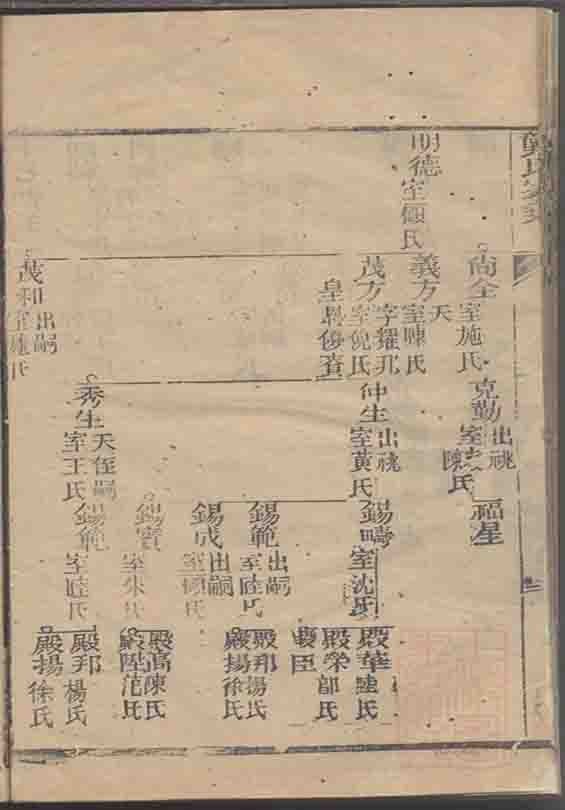 龔氏家
明德 室顧氏
尚全 室施氏
義方 夭 室陳氏
茂方 字耀邦 室倪氏
皇 賓
茂和 出嗣 室陸氏
克勤 出祧 室 陳氏
仲生 出祧 室黃氏
秀生 夭 侄嗣 室王氏
福星
錫疇 室沈氏
錫範 出嗣 室陸氏
錫成 出嗣 室顧氏
錫寶 室朱氏
錫範 室陸氏
殿華 陸氏
殿榮 郁氏
殿臣
殿邦 楊氏
殿揚 徐氏
殿高 陳氏
殿陞 范氏
殿邦 楊氏
殿揚 徐氏